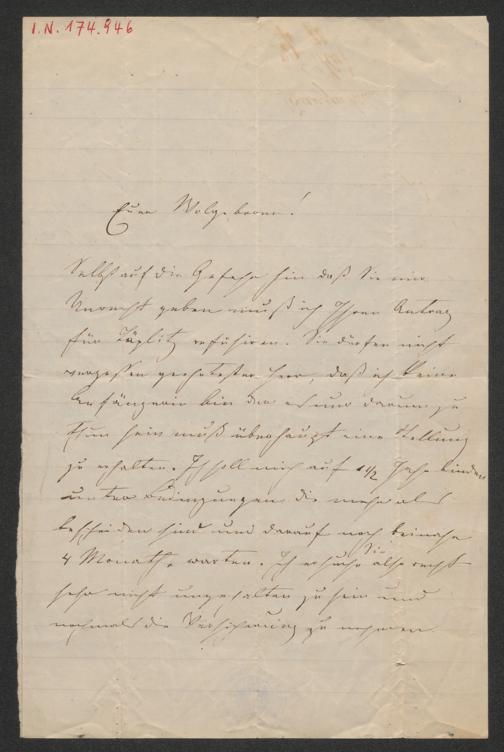 I.N. 174.946
Euer Wolgeboren!
Selbst auf die Gefahr hin daß Sie mir
Unrecht geben muß ich Ihren Antrag
für Töplitz refüsiren. Sie dürfen nicht
vergessen geehrtester Herr, daß ich keine
Anfängerin bin der es nur darum zu
thun sein muß überhaupt eine Stellung
zu erhalten. Ich soll mich auf 1 1/2 Jahr binden
unter Bedingungen die mehr als
bescheiden sind und darauf noch beinahe
4 Monathe warten. Ich ersuche Sie also recht
sehr nicht ungehalten zu sein und
nochmals die Versicherung zu nehmen